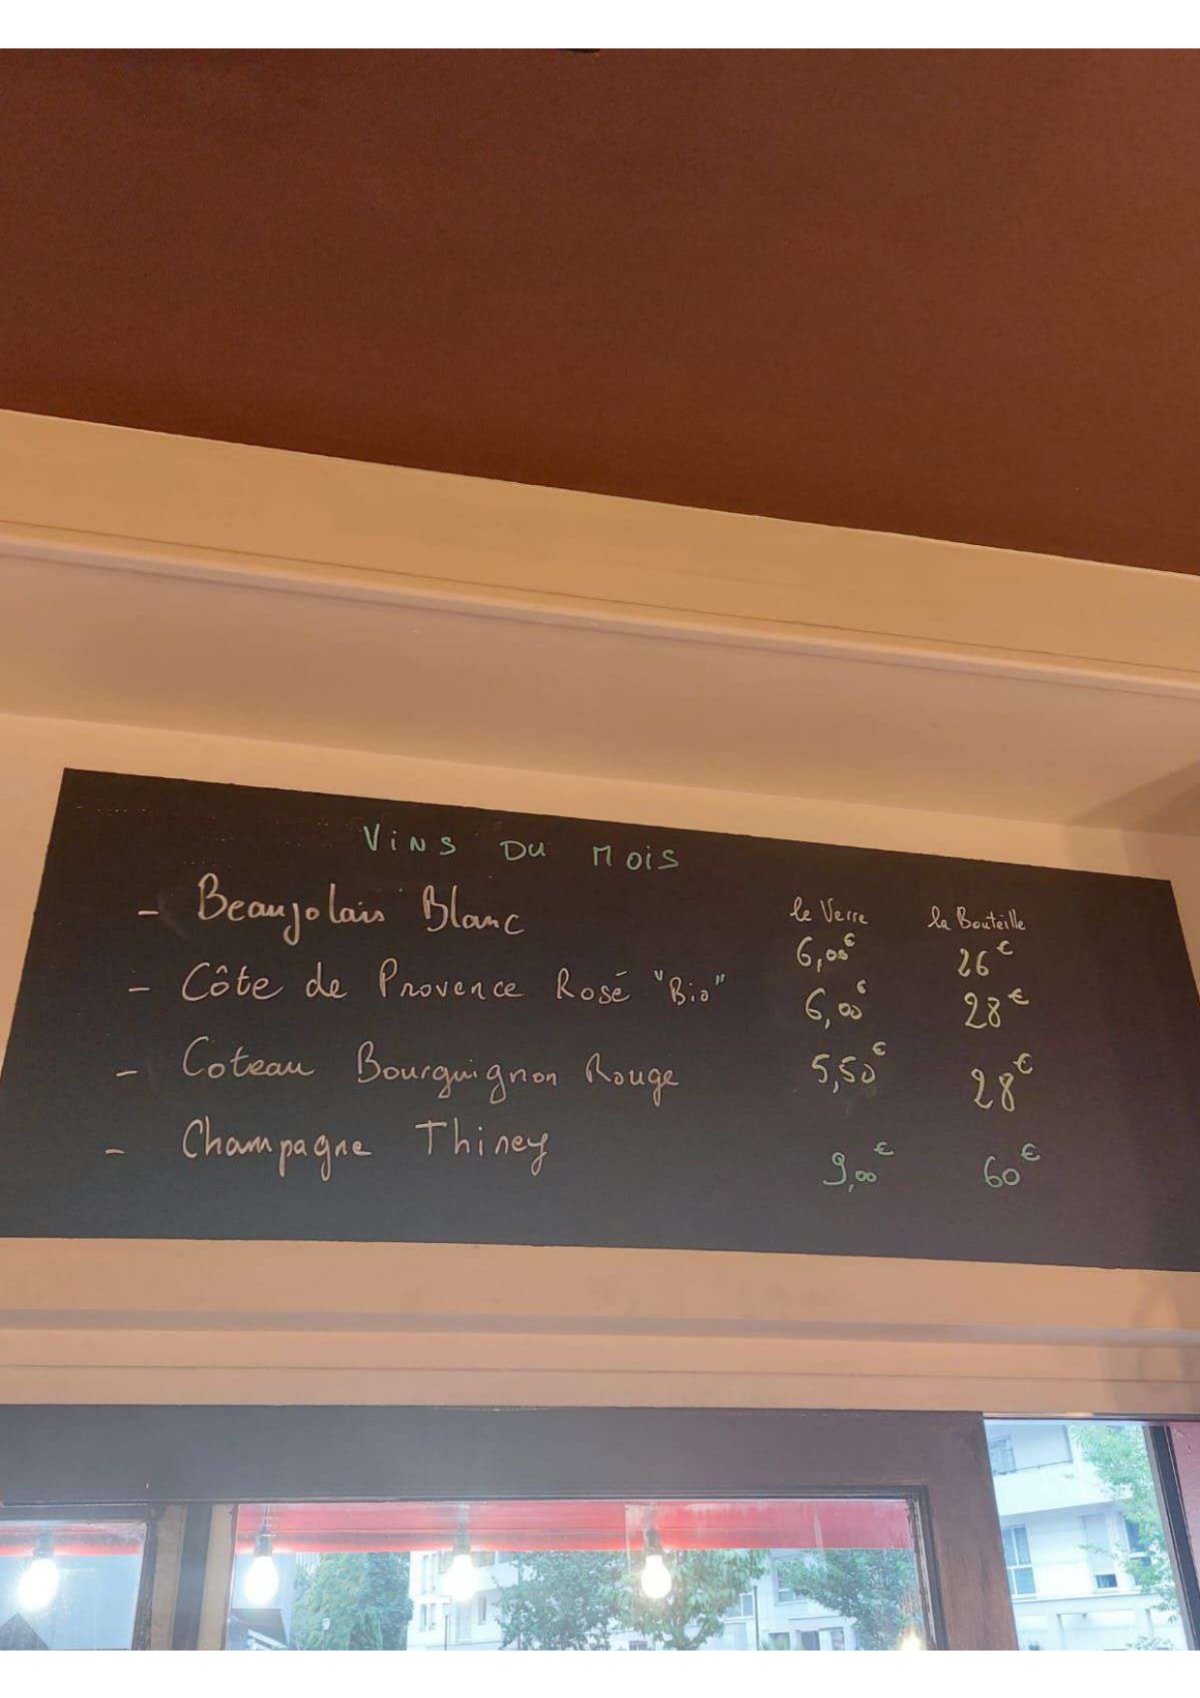 Vins du Mois
le Verre la Bouteille
- Beaujolais Blanc 6,00€ 26€
- Côte de Provence Rosé "Bio" 6,00€ 28€
- Coteau Bourguignon Rouge 5,50€ 28€
- Champagne Thiney 9,00€ 60€